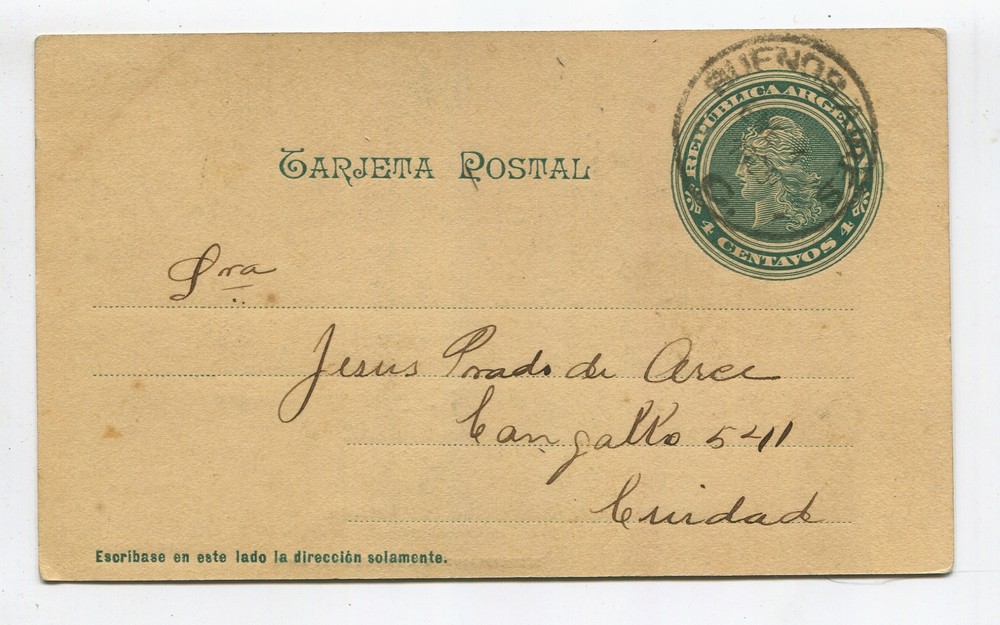 BUENOS AIRES
REPUBLICA ARGENTINA
4 CENTAVOS 4
TARJETA POSTAL
Sra
Jesus Prado de Arce
Cangallo 541
Cuidad
Escribase en este lado la dirección solamente.